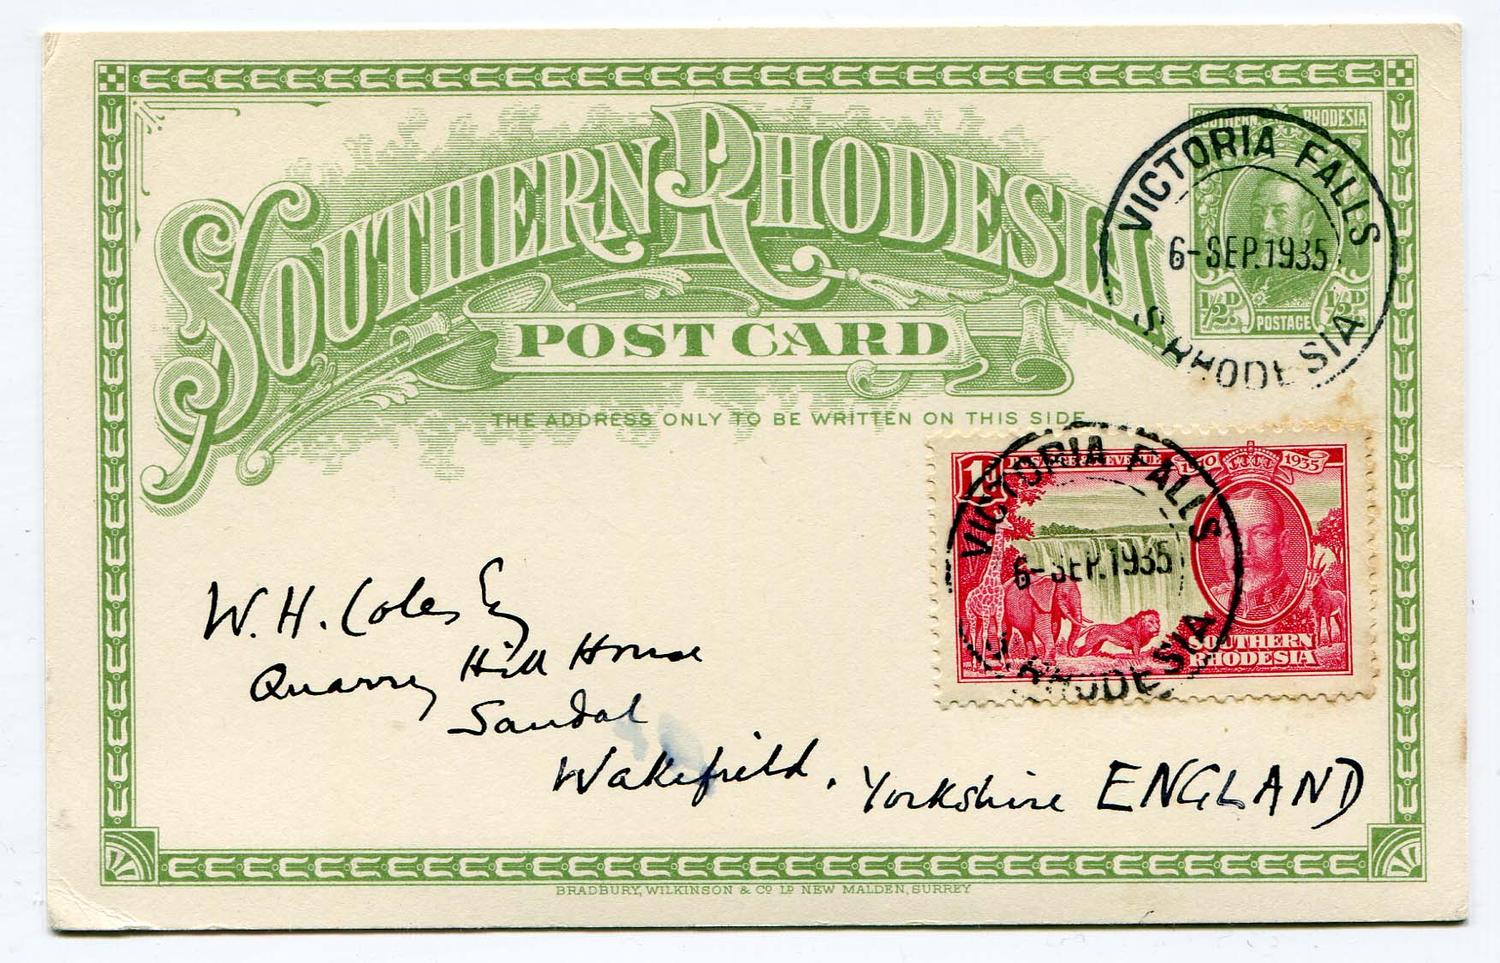 SOUTHERN RHODESIA
POST CARD
THE ADDRESS ONLY TO BE WRITTEN ON THIS SIDE
SOUTHERN RHODESIA
½D ½D
POSTAGE
VICTORIA FALLS
6-SEP.1935
S. RHODESIA
1D POSTAGE & REVENUE 1910 1935
SOUTHERN
RHODESIA
VICTORIA FALLS
6-SEP.1935
S. RHODESIA
W.H. Coles Esq
Quarry Hill House
Sandal
Wakefield. Yorkshire ENGLAND
BRADBURY, WILKINSON & Cº Lᴰ NEW MALDEN, SURREY